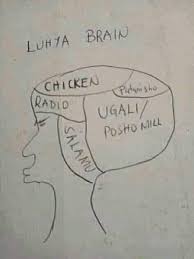 LUHYA BRAIN
CHICKEN
RADIO
UGALI/
POSHO MILL
SALAMU